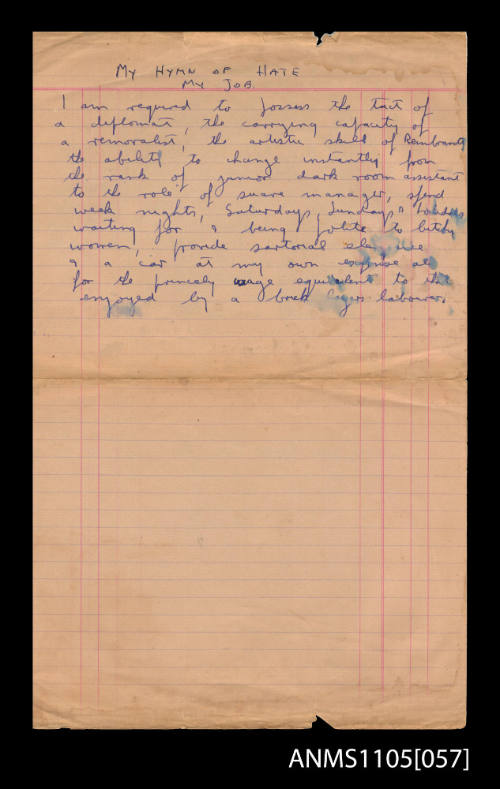 MY HYMN OF HATE
MY JOB
I am required to possess the tact of
a diplomat, the carrying capacity of
a removalist, the artistic skill of Rembrandt
the ability to change instantly from
the rank of junior dark room assistant
to the role of suave manager, spend
week nights, Saturdays, Sundays & holidays
waiting for & being polite to bitchy
women, provide sartorial
& a car at my own expense all
for the princely wage equivalent to that
enjoyed by a brick layers labourer.
ANMS1105[057]